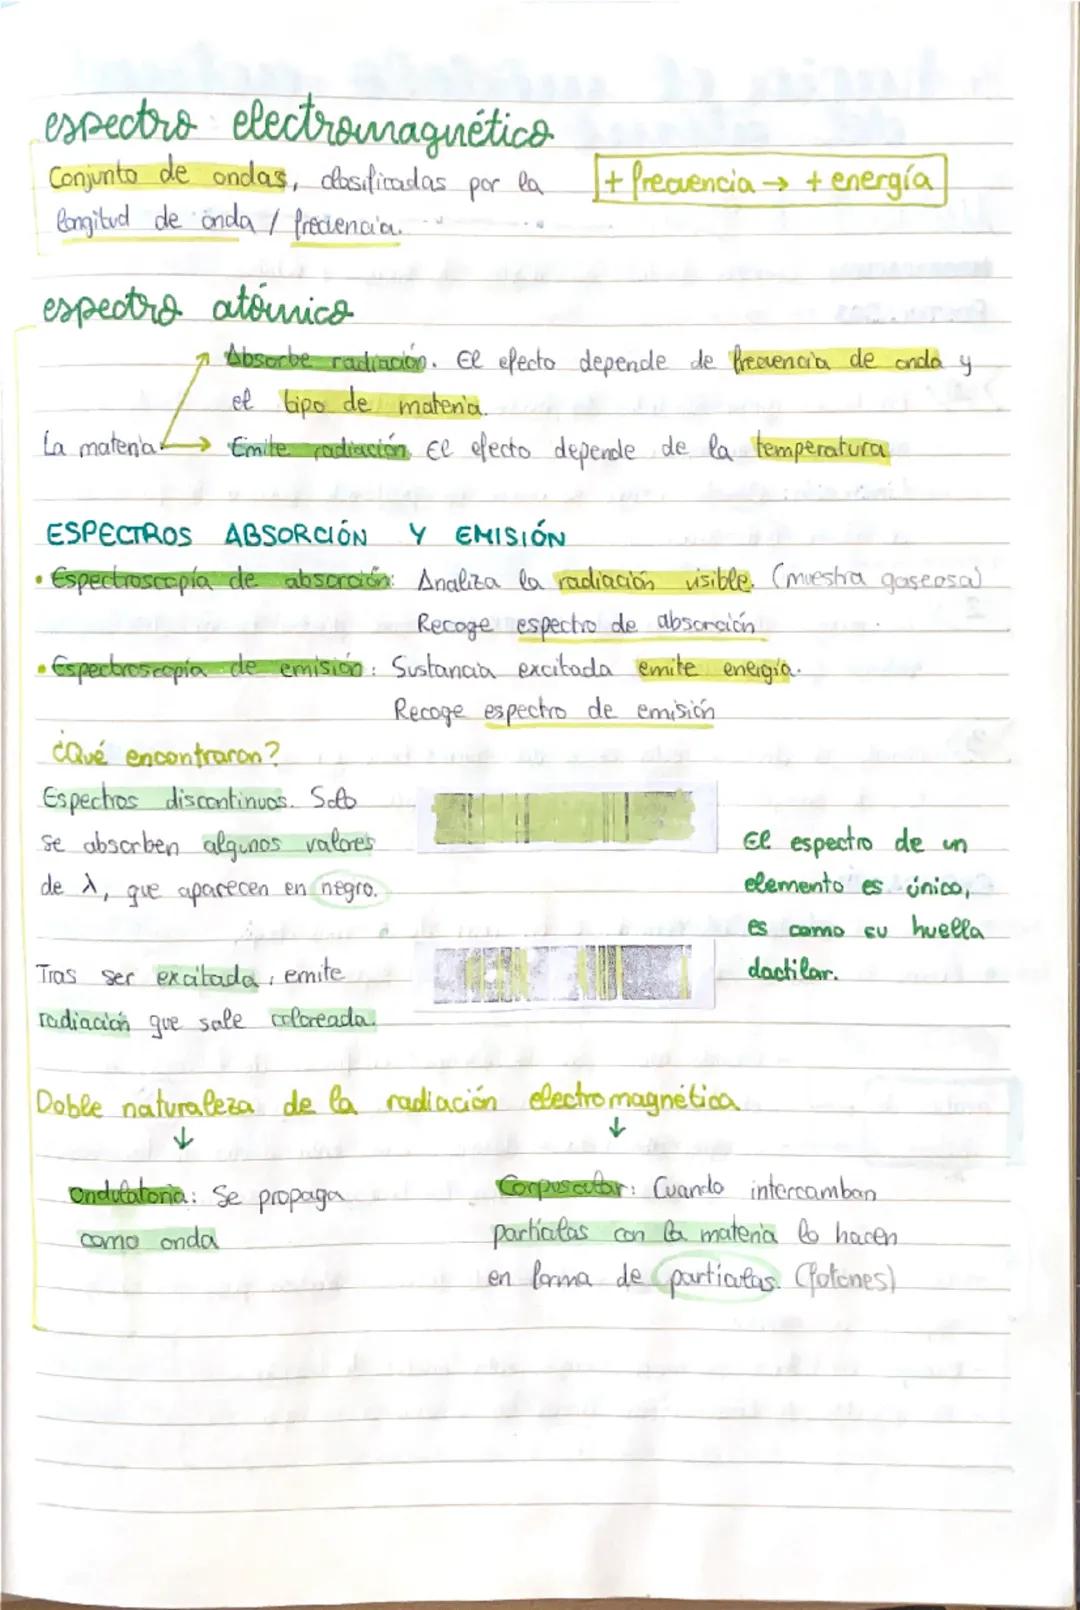 espectro electromagnético
Conjunto de ondas, clasificadas por la
longitud de onda / frecuencia.
+ frecuencia → + energía
espectro atómico
Absorbe radiación. El efecto depende de frecuencia de onda y
el tipo de materia.
La materia:
Emite radiación. El efecto depende de la temperatura
ESPECTROS ABSORCIÓN Y EMISIÓN
• Espectroscopía de absorción: Analiza la radiación visible. (muestra gaseosa)
Recoge espectro de absorción
• Espectroscopía de emisión: Sustancia excitada emite energía.
Recoge espectro de emisión
¿Qué encontraron?
Espectros discontinuos. Solo
se absorben algunos valores
de λ, que aparecen en negro.
Tras ser excitada, emite
radiación que sale coloreada.
El espectro de un
elemento es único,
es como su huella
dactilar.
Doble naturaleza de la radiación electromagnética
↓ ↓
Ondulatoria: Se propaga
como onda
Corpuscular: Cuando intercamban
partículas con la materia lo hacen
en forma de partículas. (fotones)